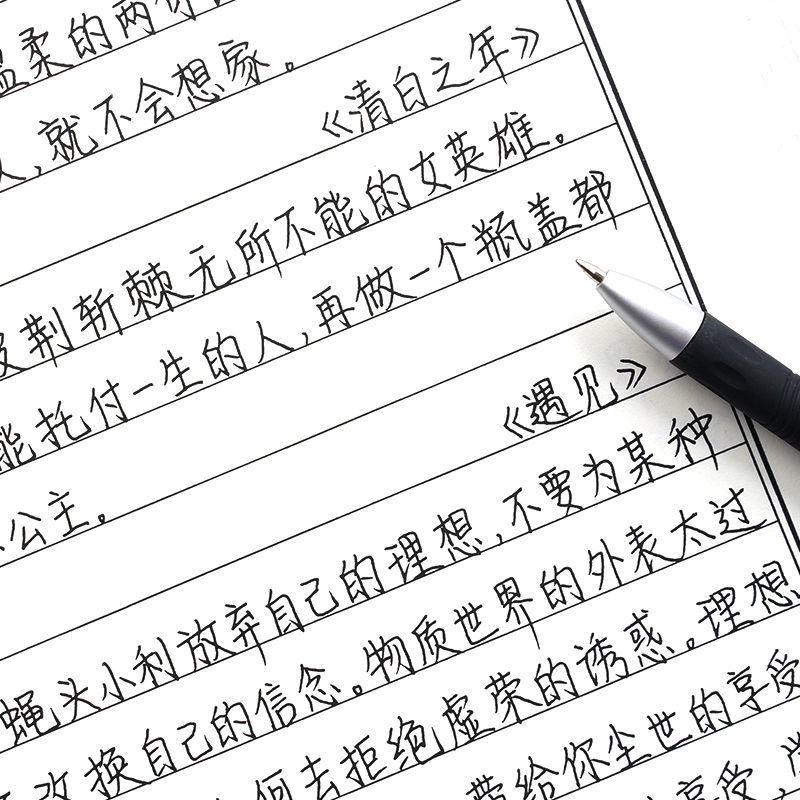 温柔的两
人,就不会想家。
《清白之年》
荆斩棘无所不能的女英雄。
能托付一生的人,再做一个瓶盖都
《遇见》
公主。
蝇头小利放弃自己的理想,不要为某种
改换自己的信念。物质世界的外表太过
何去拒绝虚荣的诱惑。理想
带给你尘世的享受
享受